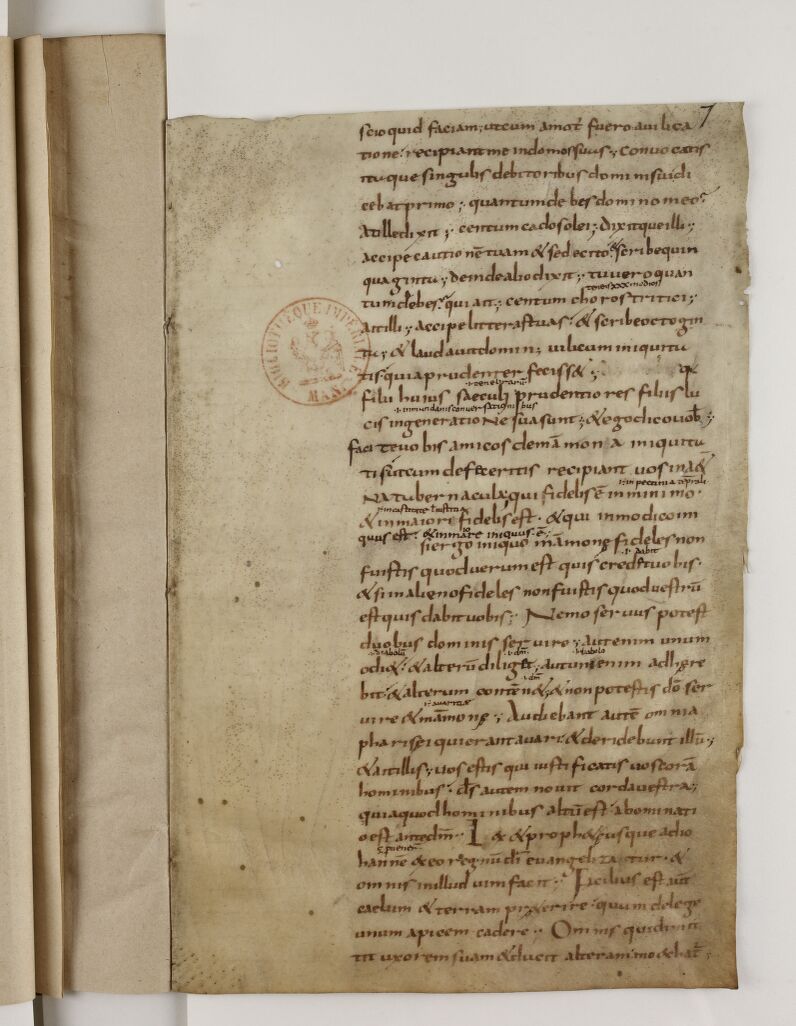 7
scio quid faciam; ut cum amot fuero auilica
tione; recipiant me in domos suus; Conuocatis
ituque singulis debitoribus domini sui di
cebat primo; quantum debes domino meo
At ille dixit; centum cados olei; dixitque illi;
accipe cautionē tuam & sede cito scribe quin
quaginta; deinde alio dixit; tu uero quan
tenes xxx modios
tum debes; qui ait; centum choros tritici;
ait illi; accipe litteras tuas & scribe octogin
ta; & laudauit domin; uilicum iniquita
tis quia prudenter feciss&; q
filii huius saeculi prudentiores filiis lu
cis in generatione sua sunt; & ego dico uob;
facite uobis amicos de mamona iniquita
tis ut cum defeceritis recipiant uos in a&
na tabernacula; qui fidelis ē in minimo
& in maiori fidelis est & qui in modico ini
quus est & in maiore iniquus ē
si ergo iniquo māmone fideles non
fuistis quod uerum est quis cred& uobis
& si in alieno fideles non fuistis quod uestrū
est quis dabit uobis; Nemo seruus potest
duobus dominis seruire; aut enim unum
i diabolū i dm i diabolo
odi& & alterū dilig&; aut uni enim adhere
i dm
bit & alterum contēn&; & non potestis dō ser
i auaritiae
uire & māmone; Audiebant autē omnia
pharisei qui erant auari & deridebunt illū;
& ait illis; uos estis qui iustificatis uos corā
hominibus ds autem nouit corda uestra;
quia quod hominibus altū est abominati
o est ante dm L ex & proph&e usque ad io
hannē & eo regnū di euangelizatur &
omnis in illud uim facit; Facilius est aūt
caelum & terram pr&erire quum de lege
unum apicem cadere; Omnis qui dimit
tit uxorem suam & ducit alteram moechat;
BIBLIOTHEQUE IMPERIALE
MAN.